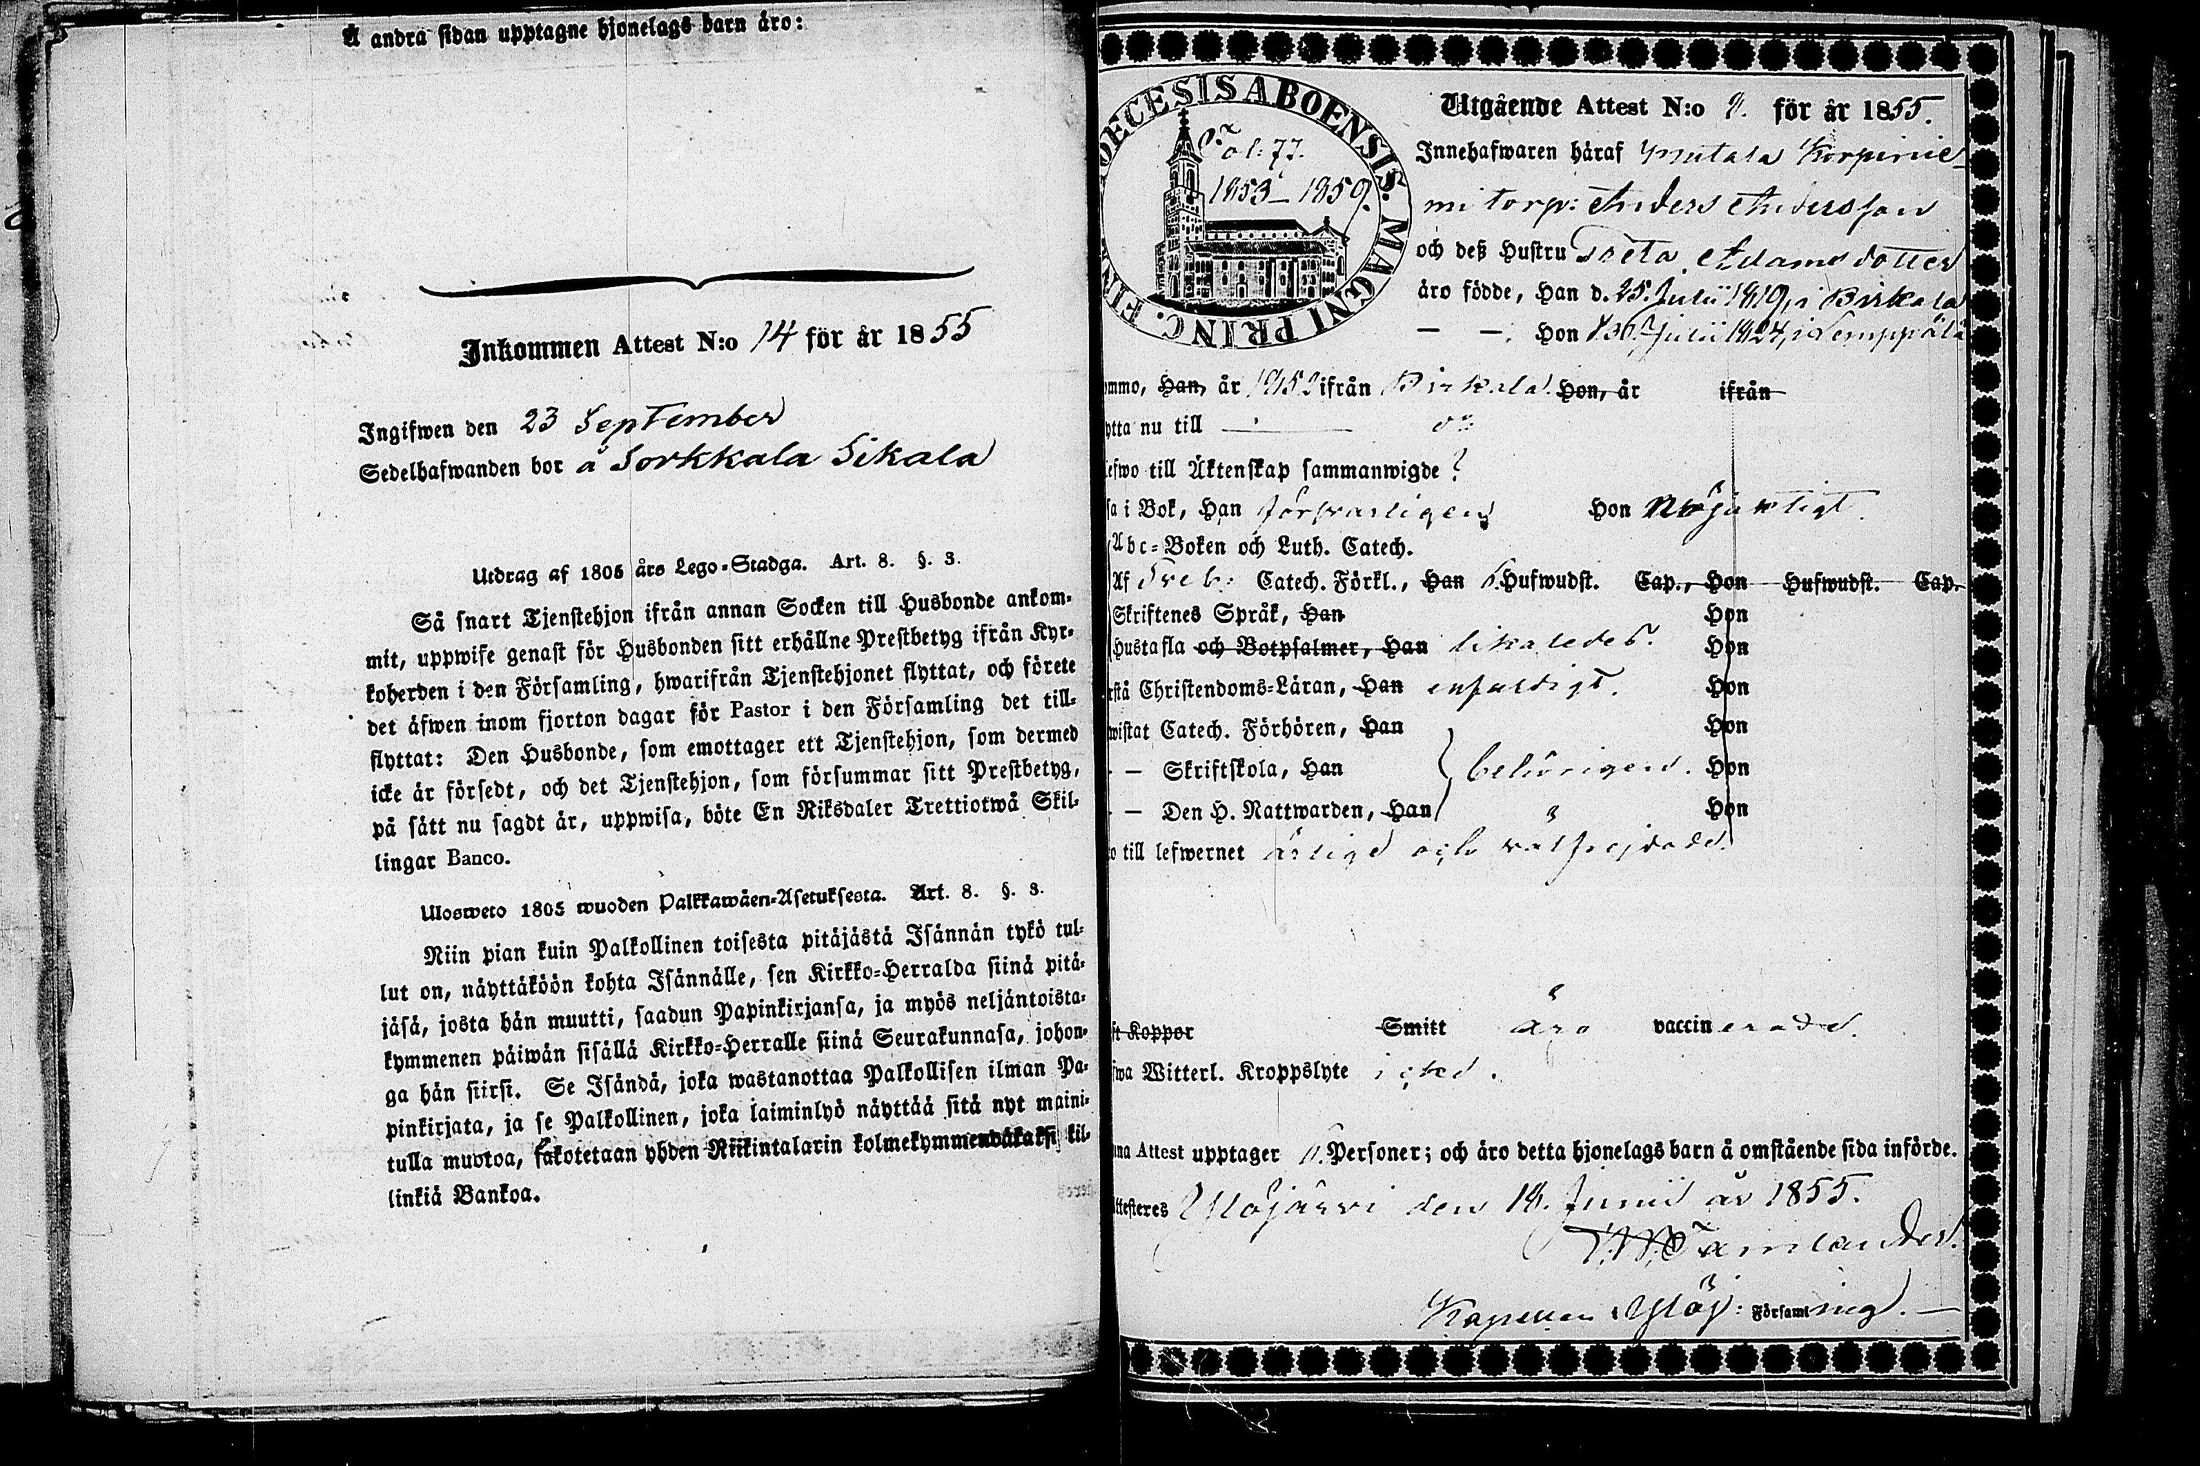 Å andra sidan upptagne hjonelags barn äro:
Inkommen Attest N:o 14 för år 1855
Ingifwen den 23 September
Sedelhafwanden bor å Sorkkala Sikala
Utdrag af 1805 års Lego-Stadga. Art. 8. §. 3.
Så snart Tjenstehjon ifrån annan Socken till Husbonde ankom-
mit, uppwise genast för Husbonden sitt erhållne Prestbetyg ifrån Kyr-
koherden i den Församling, hwarifrån Tjenstehjonet flyttat, och förete
det äfwen inom fjorton dagar för Pastor i den Församling det till-
flyttat: Den Husbonde, som emottager ett Tjenstehjon, som dermed
icke är försedt, och det Tjenstehjon, som försummar sitt Prestbetyg,
på sätt nu sagdt är, uppwisa, böte En Riksdaler Trettiotwå Skil-
lingar Banco.
Ulosweto 1805 wuoden Palkkawäen-Asetuksesta. Art. 8. §. 3.
Niin pian kuin Palkollinen toisesta pitäjästä Isännän tykö tul-
lut on, näyttäköön kohta Isännälle, sen Kirkko-Herralda siinä pitä-
jäsä, josta hän muutti, saadun Papinkirjansa, ja myös neljäntoista-
kymmenen päiwän sisällä Kirkko-Herralle siinä Seurakunnasa, johon-
ga hän siirsi. Se Isändä, joka wastanottaa Palkollisen ilman Pa-
pinkirjata, ja se Palkollinen, joka laiminlyö näyttää sitä nyt maini-
tulla muotoa, sakotetaan yhden Riikintalarin kolmekymmendäkaksi kil-
linkiä Bankoa.
DIOECESIS ABOENSIS. MAGNI PRINC. FINL
Fol: 77.
1853–1859.
Utgående Attest N:o 9. för år 1855.
Innehafwaren häraf Mutala Korpinie-
mi torp: Anders Andersson
och deß Hustru Greta Adamsdotter
äro födde, Han d. 25. Julii 1819, i Birkala
— — Hon d. 30. Julii 1824, i Lemppälä
ommo, Han, år 1852 ifrån Birkala. Hon, år ifrån
ytta nu till — d:o
lefwo till Äktenskap sammanwigde?
sa i Bok, Han förswarligen Hon Nöjaktigt.
Abc-Boken och Luth. Catech.
Af Sveb: Catech. Förkl., Han 5. Hufwudst. Cap., Hon Hufwudst. Cap.
Skriftenes Språk, Han Hon
Hustafla och Botpsalmer, Han likaledes. Hon
rstå Christendoms-Läran, Han enfaldigt. Hon
wistat Catech. Förhören, Han Hon
— Skriftskola, Han behörigen. Hon
— Den H. Nattwarden, Han Hon
o till lefwernet ärlige och wälfrejdade.
ft Koppor Smitt äro vaccinerade.
fwa Witterl. Kroppslyte icke.
nna Attest upptager Personer; och äro detta hjonelags barn å omstående sida införde.
Attesteres Ylöjärvi den 18. Junii år 1855.
Kapellan i Ylöj: Församling. —